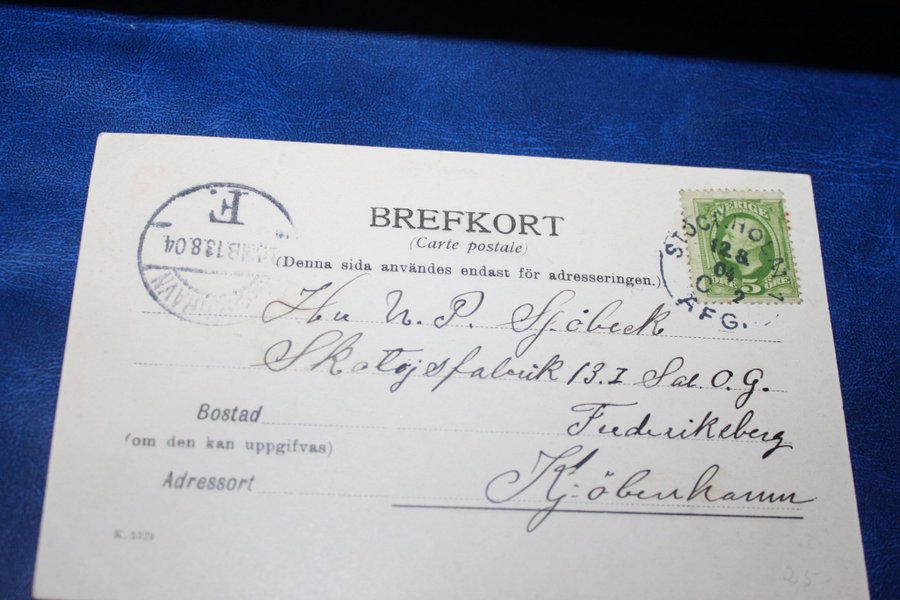 BREFKORT
(Carte postale)
(Denna sida användes endast för adresseringen.)
SVERIGE
5
ÖRE
ÖRE
STOCKHOLM
12.8.
04
2
AFG.
F.
13.8.04
N. P. Sjöbeck
13. I Sal. O. G.
Bostad
Frederiksberg
(om den kan uppgifvas)
Adressort
Kjöbenhamn
25-